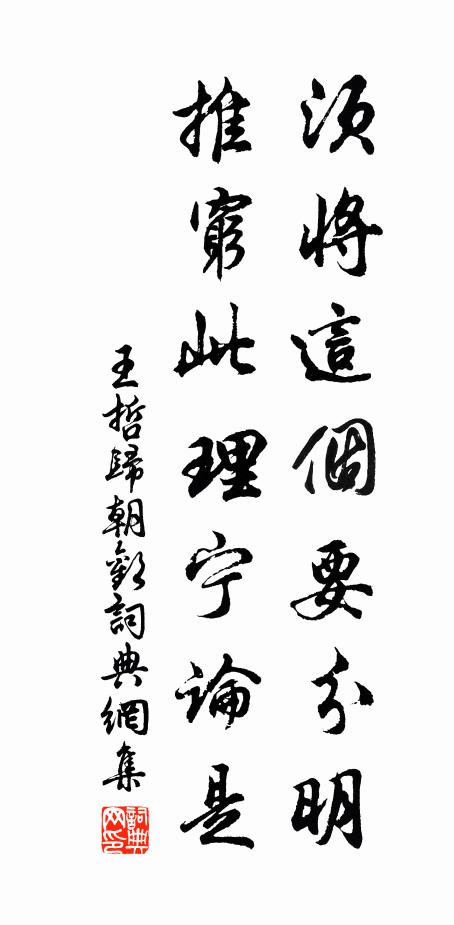 須將這個要分明
推窮此理宁論是
王哲歸朝歡詞典網集
詞典网印